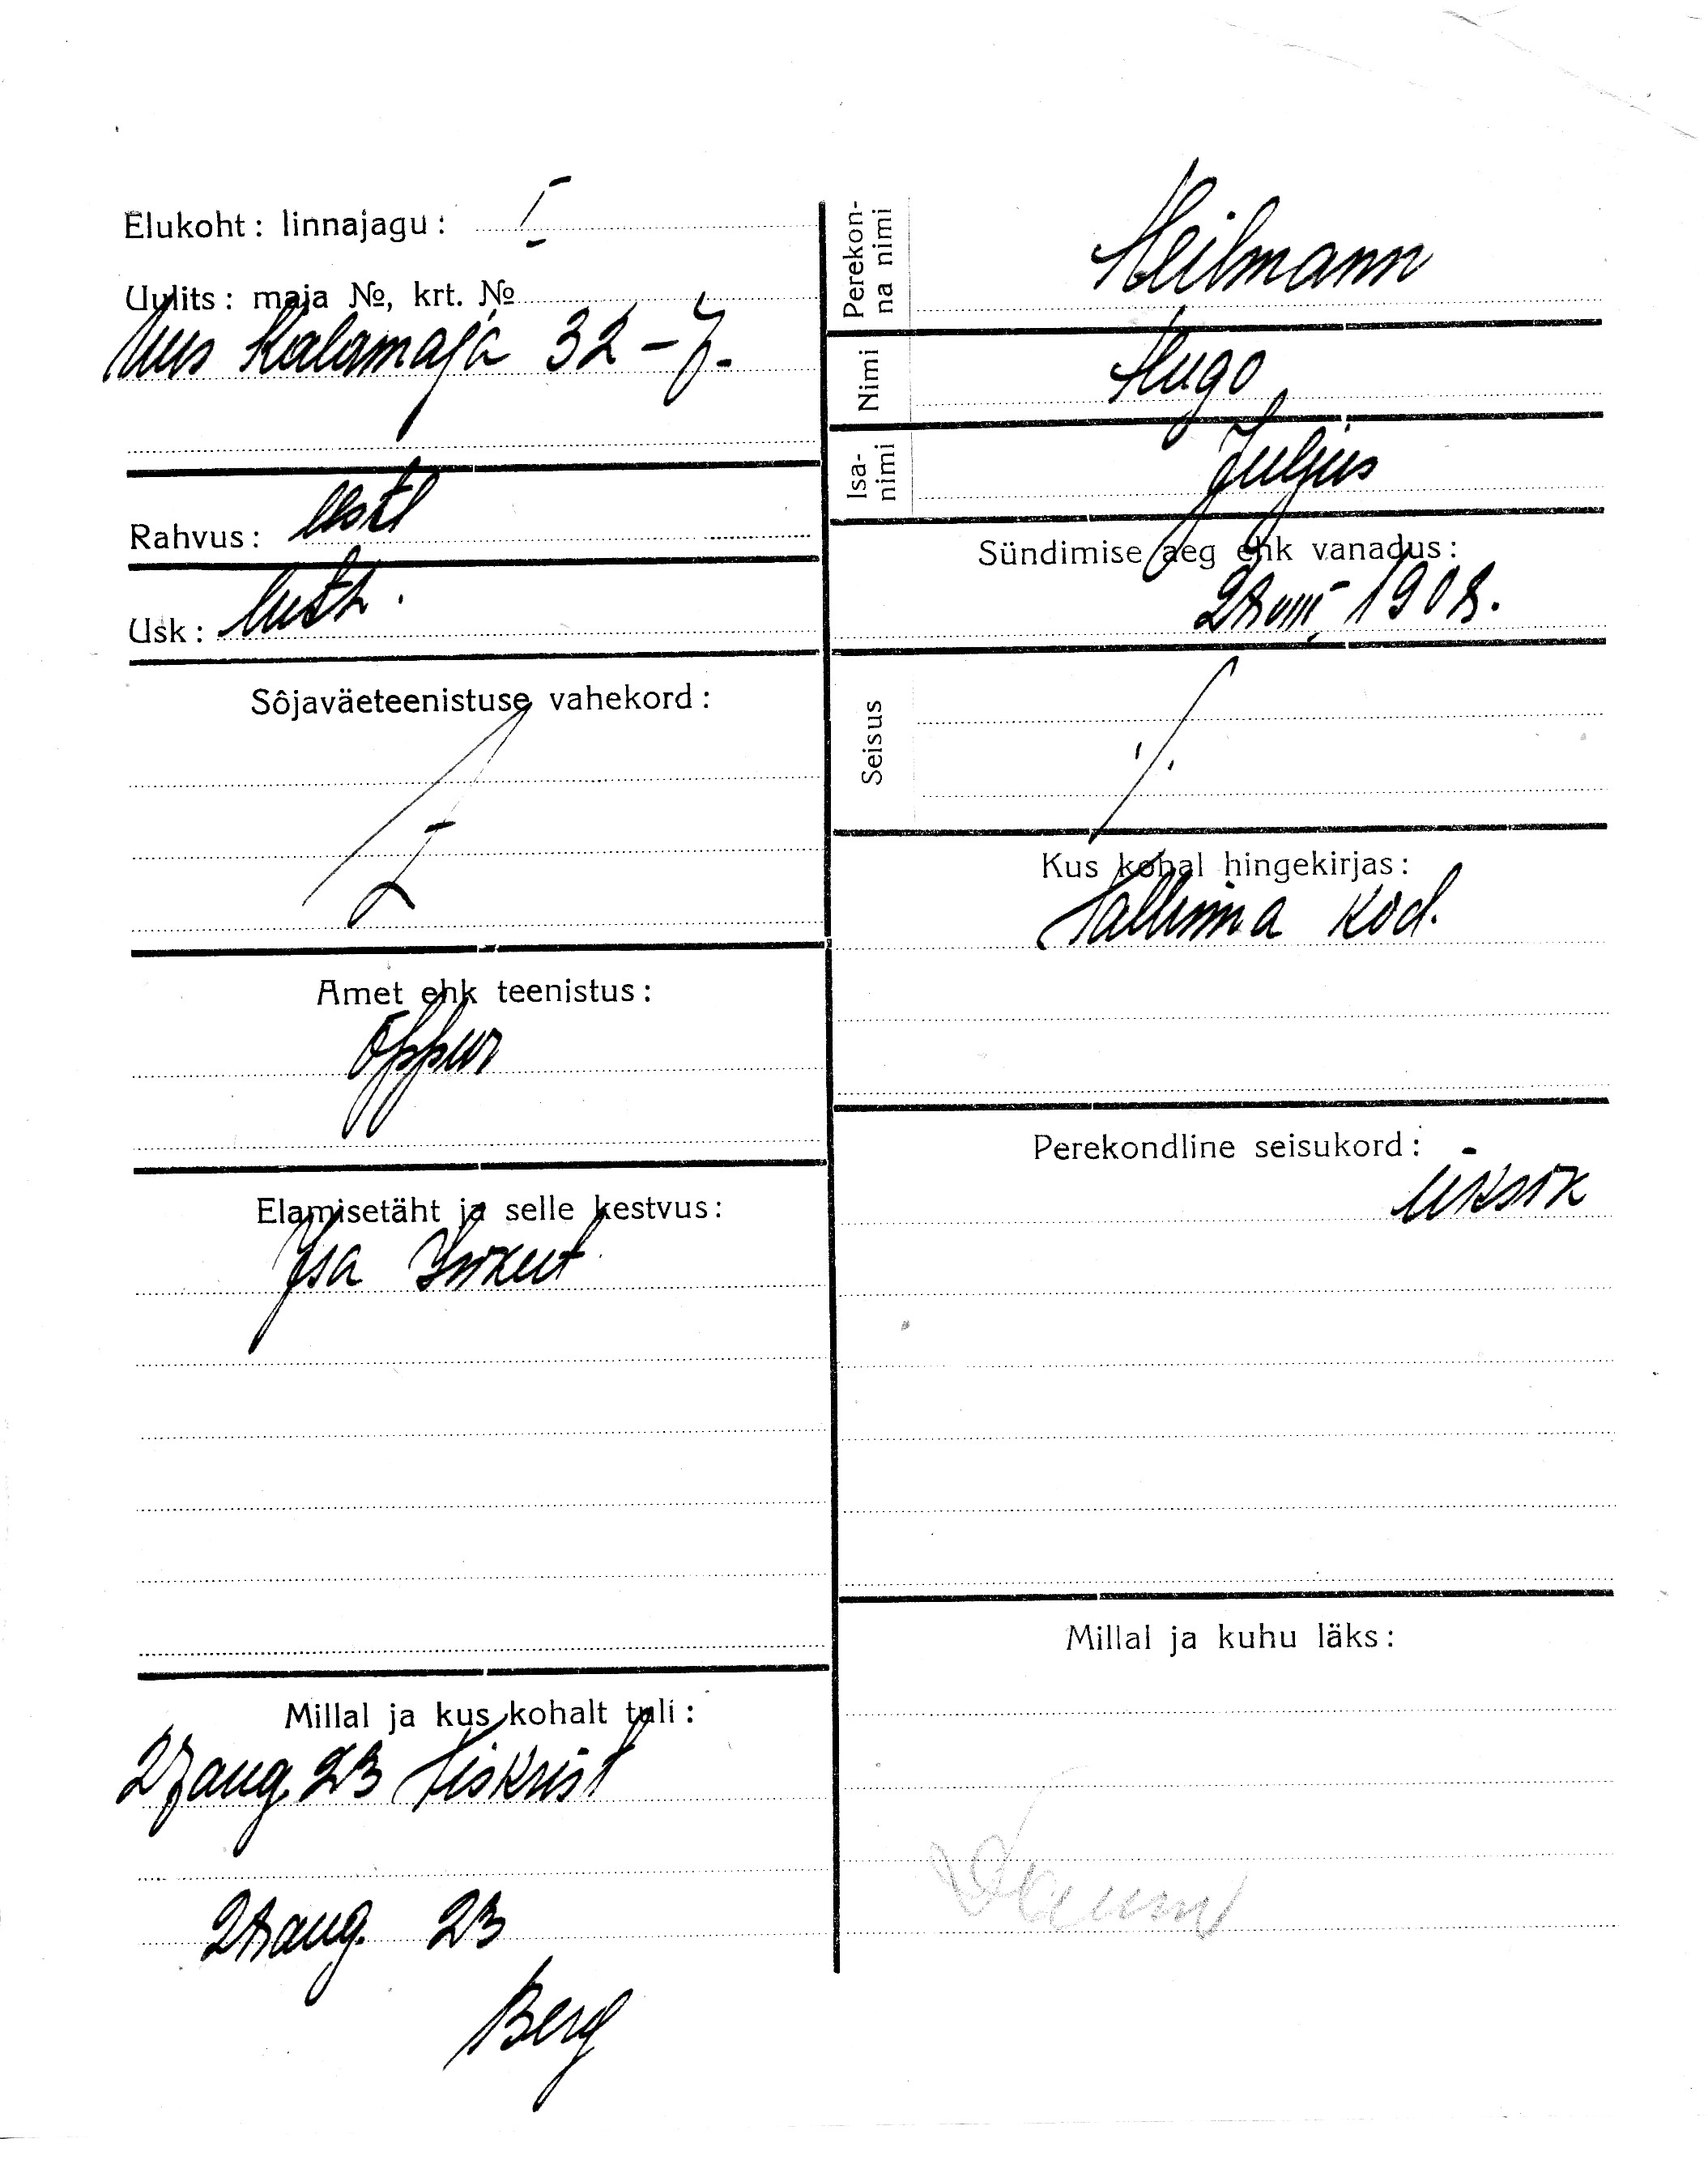 Elukoht: linnajagu: I
Uulits: maja №, krt. №
Uus Kalamaja 32-7.
Rahvus: eestl
Usk: luth.
Sôjaväeteenistuse vahekord:
Amet ehk teenistus:
õppur
Elamisetäht ja selle kestvus:
Isa
Millal ja kus kohalt tuli:
27 aug. 23 Tiskrist
28 aug. 23
Berg
Perekon-
na nimi
Heilmann
Nimi Hugo
Isa-
nimi
Juljus
Sündimise aeg ehk vanadus:
28 VIII 1908.
Seisus
Kus kohal hingekirjas:
Tallinna kod.
Perekondline seisukord:
üksik
Millal ja kuhu läks: